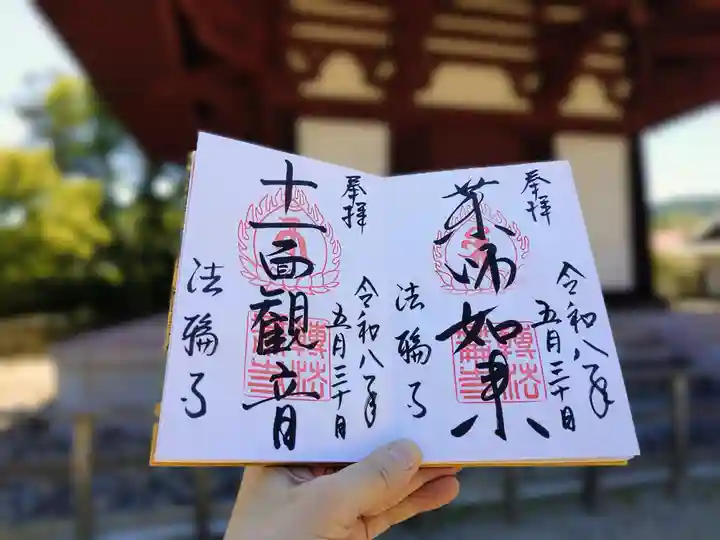 奉拝
薬師如来
令和八年
五月三十日
法輪寺
奉拝
十一面観音
令和八年
五月三十日
法輪寺